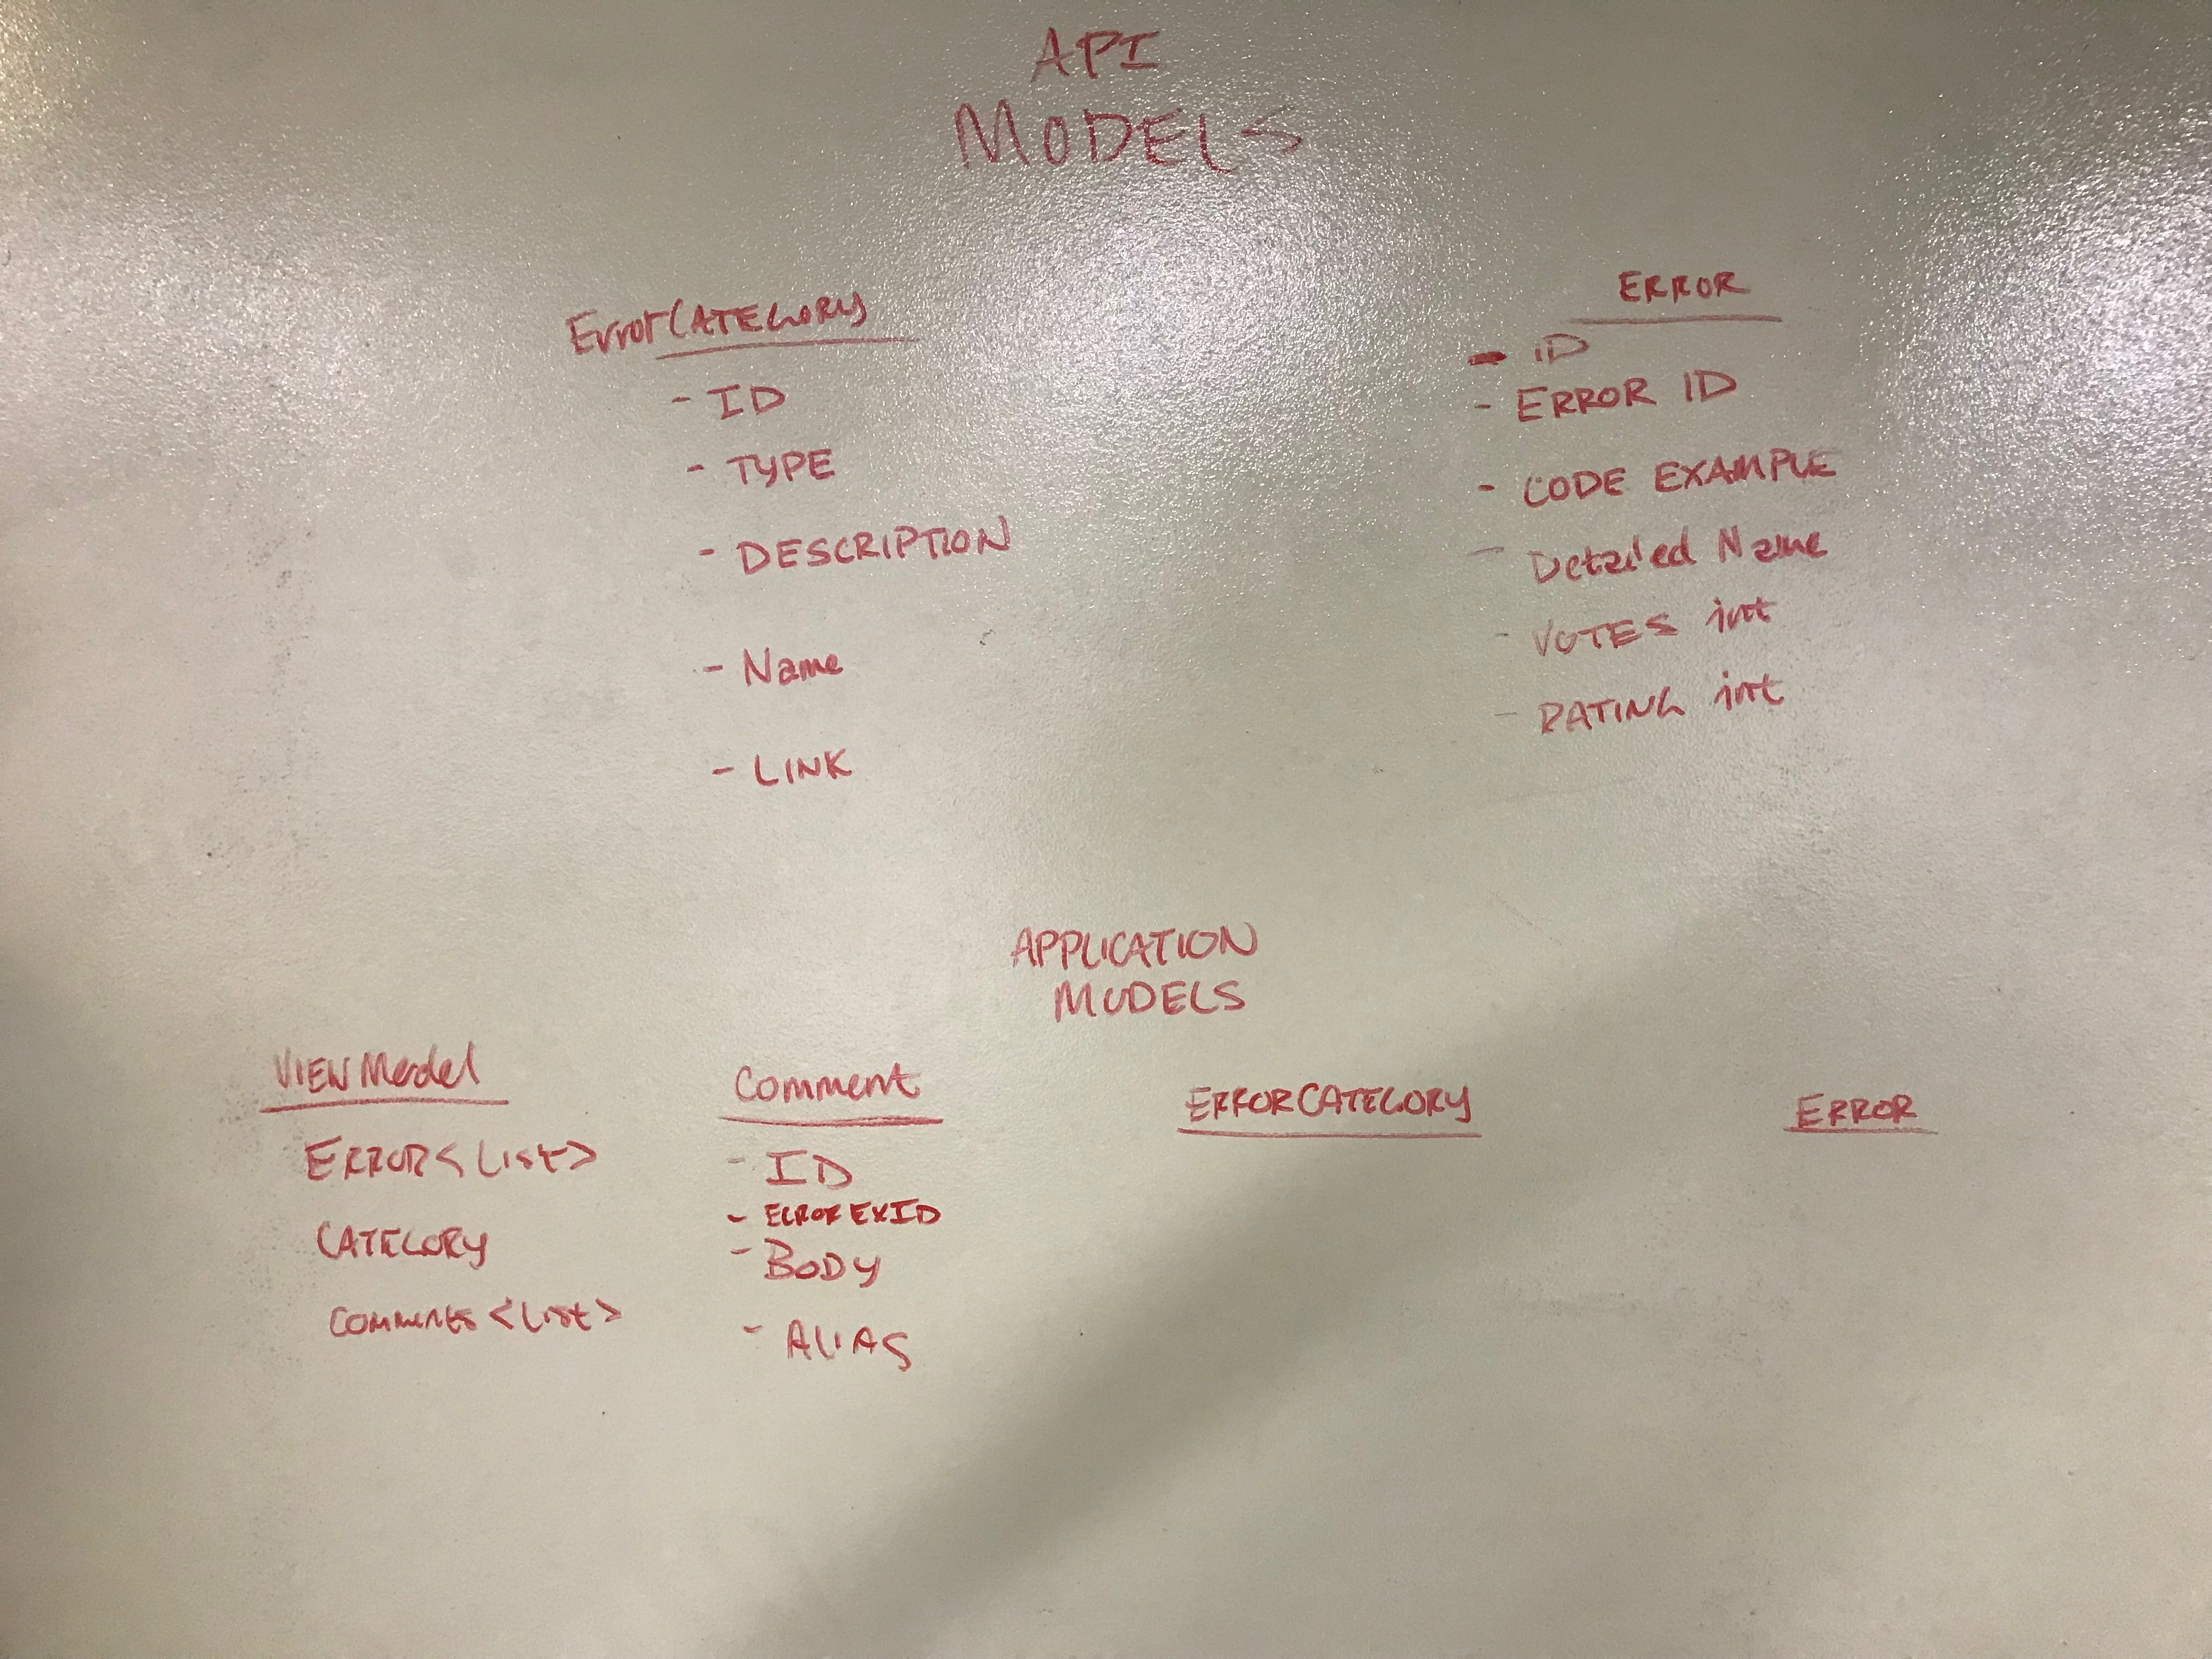 API
MODELS
ErrorCATEGORY
- ID
- TYPE
- DESCRIPTION
- Name
- LINK
ERROR
- ID
- ERROR ID
- CODE EXAMPLE
- Detailed Name
- VOTES int
- RATING int
APPLICATION
MODELS
VIEWModel
ERROR<List>
CATEGORY
Comments<List>
Comment
- ID
- ERROR EXID
- BODY
- ALIAS
ERRORCATEGORY
ERROR